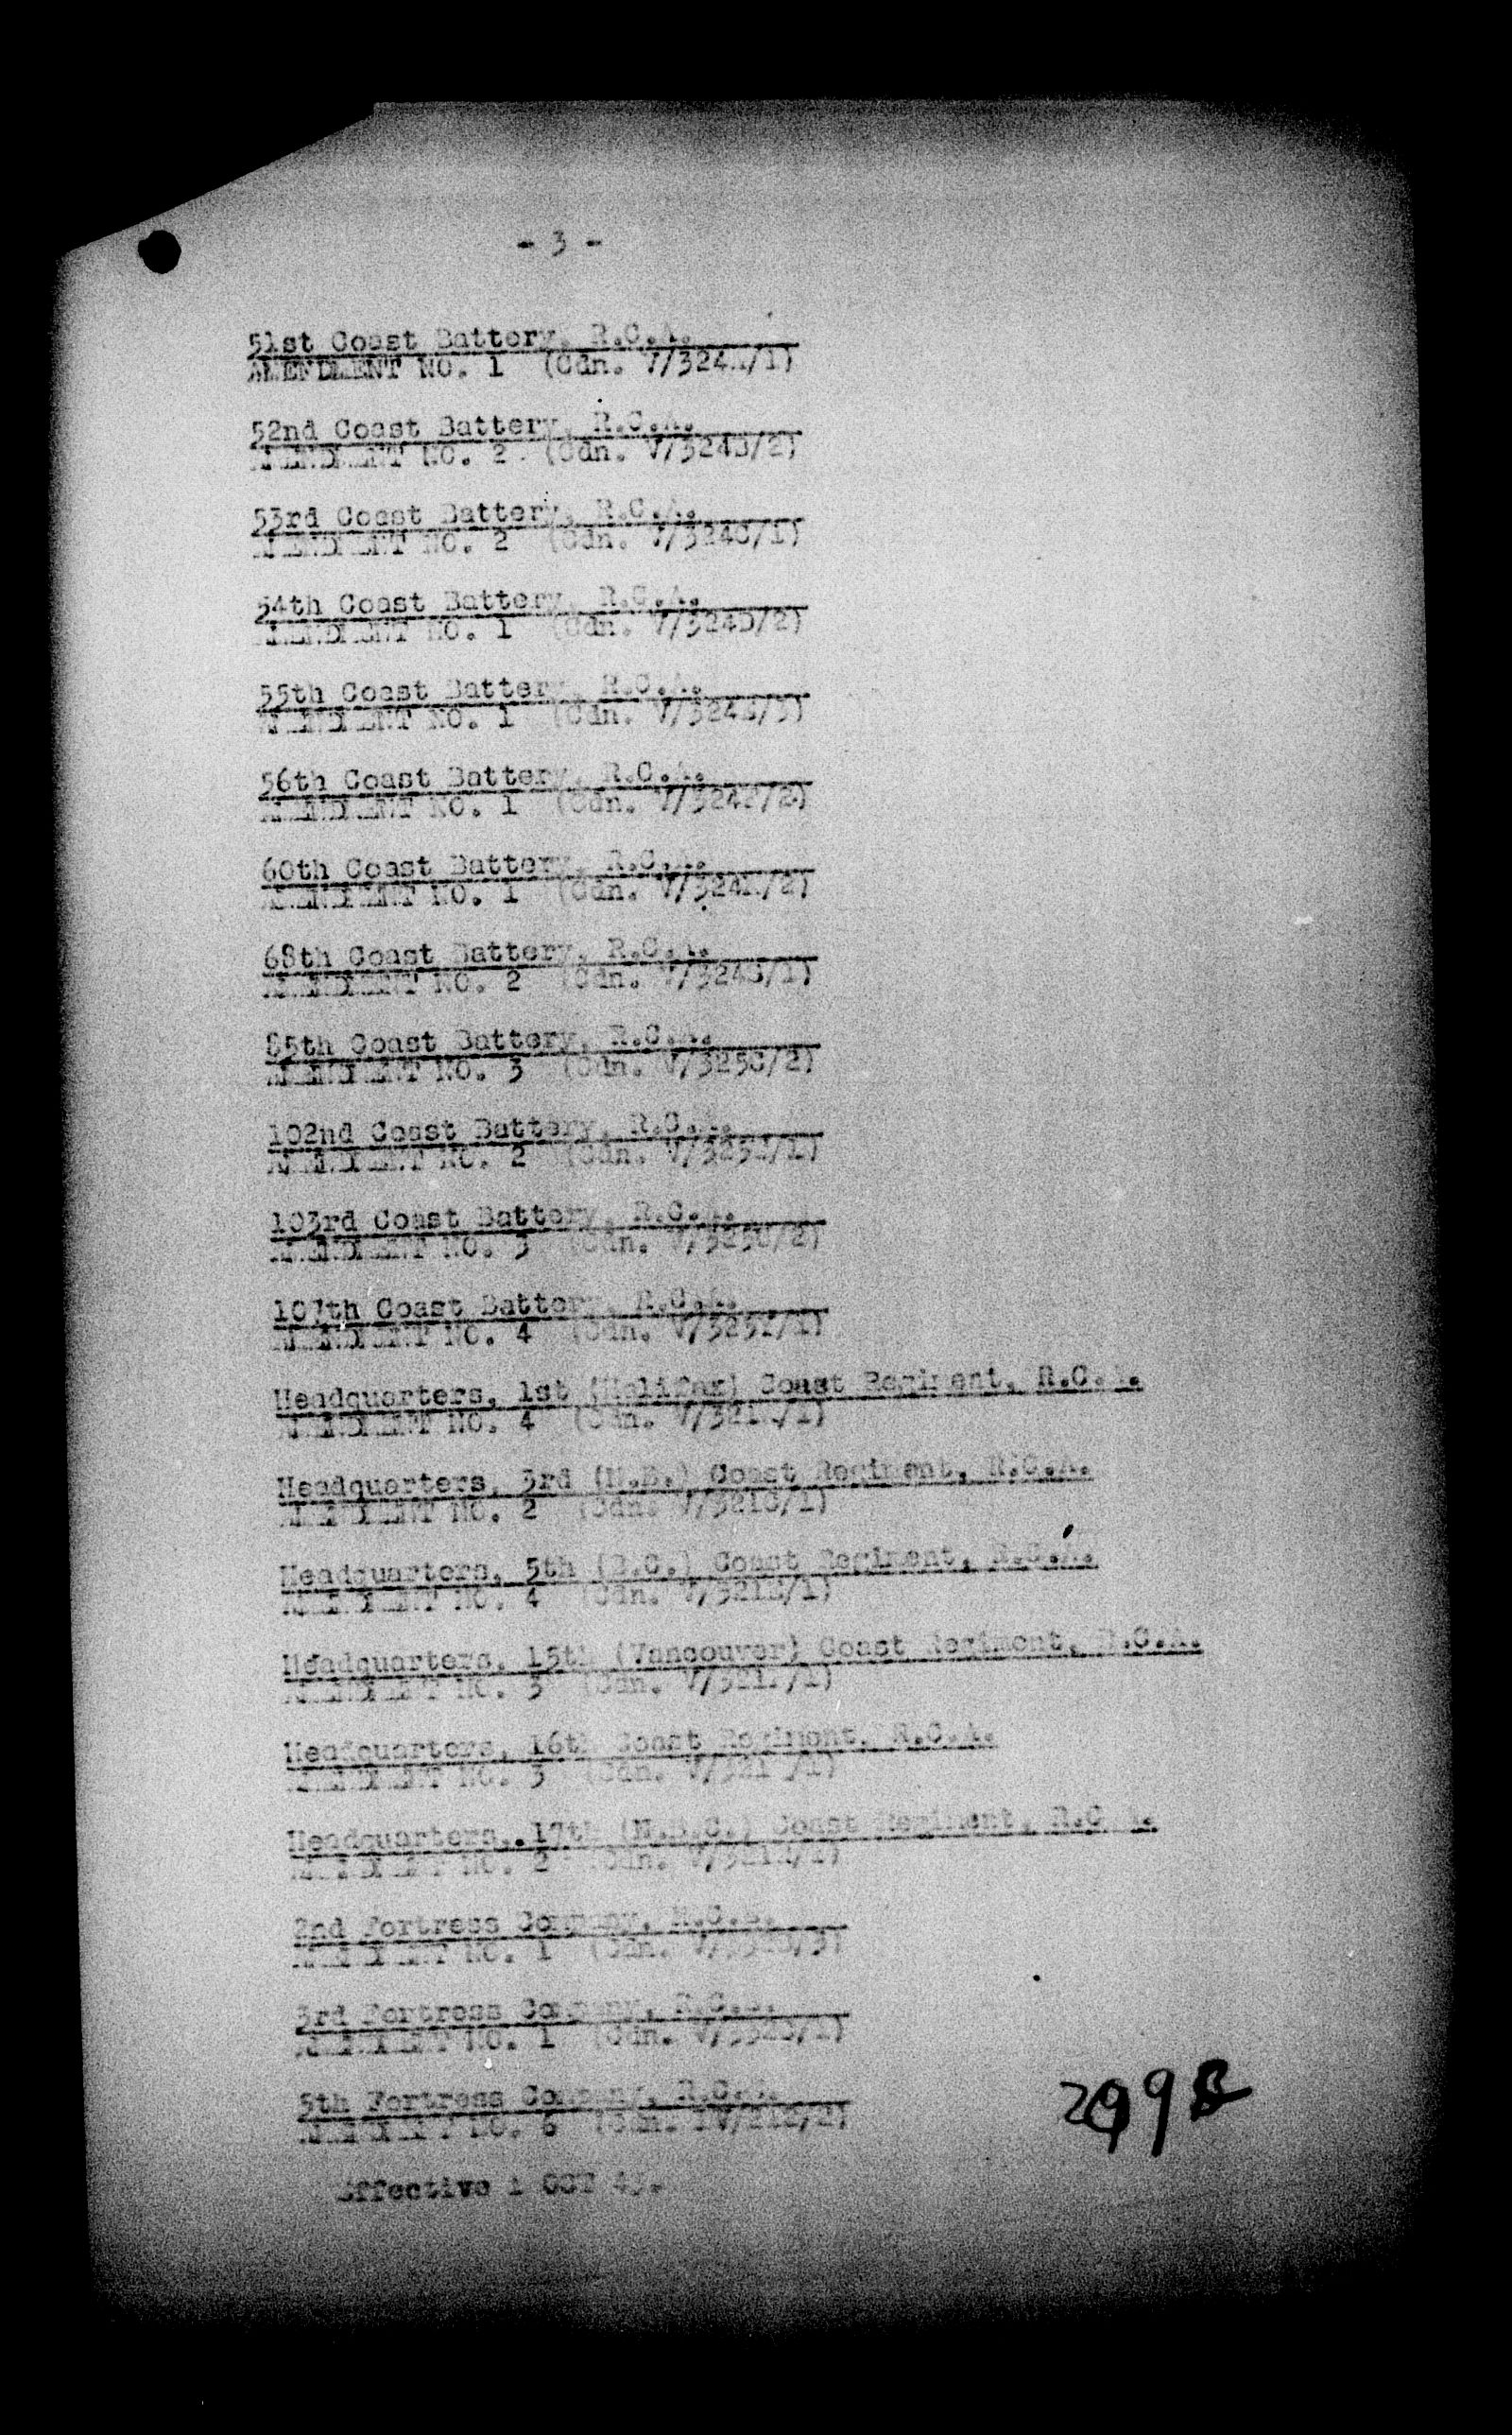 - 3 -
51st Coast Battery, R.C.A.
AMENDMENT NO. 1 (Cdn.
52nd Coast Battery, R.C.A.
AMENDMENT NO. 2 (Cdn. V/324B/2)
53rd Coast Battery, R.C.A.
AMENDMENT NO. 2 (Cdn. V/324C/1)
54th Coast Battery, R.C.A.
AMENDMENT NO. 1 (Cdn. V/324D/2)
55th Coast Battery, R.C.A.
AMENDMENT NO. 1 (Cdn. V/324E/3)
56th Coast Battery, R.C.A.
AMENDMENT NO. 1 (Cdn. V/324F/2)
60th Coast Battery, R.C.A.
AMENDMENT NO. 1 (Cdn.
68th Coast Battery, R.C.A.
AMENDMENT NO. 2 (Cdn.
85th Coast Battery, R.C.A.
AMENDMENT NO. 3 (Cdn. V/325C/2)
102nd Coast Battery, R.C.A.
AMENDMENT NO. 2 (Cdn.
103rd Coast Battery, R.C.A.
AMENDMENT NO. 3 (Cdn.
107th Coast Battery, R.C.A.
AMENDMENT NO. 4 (Cdn.
Headquarters, 1st (Halifax) Coast Regiment, R.C.A.
AMENDMENT NO. 4 (Cdn.
Headquarters, 3rd (N.B.) Coast Regiment, R.C.A.
AMENDMENT NO. 2 (Cdn. V/321C/1)
Headquarters, 5th (B.C.) Coast Regiment, R.C.A.
AMENDMENT NO. 4 (Cdn. V/321E/1)
Headquarters, 15th (Vancouver) Coast Regiment, R.C.A.
AMENDMENT NO. 3 (Cdn.
Headquarters, 16th Coast Regiment, R.C.A.
AMENDMENT NO. 3 (Cdn.
Headquarters, 17th (N.B.C.) Coast Regiment, R.C.A.
AMENDMENT NO. 2 (Cdn.
2nd Fortress Company, R.C.E.
AMENDMENT NO. 1 (Cdn.
3rd Fortress Company, R.C.E.
AMENDMENT NO. 1 (Cdn.
5th Fortress Company, R.C.E.
AMENDMENT NO. 6 (Cdn.
Effective 1 OCT